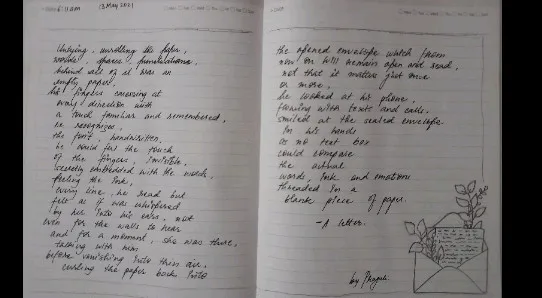 6:11am 13 May 2021
Untying, unrolling the paper,
words, spaces, punctuations,
behind all of it was an
empty paper,
his fingers caressing at
every direction with
a touch familiar and remembered,
he recognizes,
the font, handwritten,
he could feel the touch
of the fingers, invisible,
secretly embedded with the words,
feeling the ink,
every line, he read but
felt as it was whispered
by her into his ears, not
even for the walls to hear
and for a moment, she was there,
talking with him
before vanishing into thin air,
curling the paper back into
the opened envelope which from
now on will remain open and read,
not that it matters just once
or more,
he looked at his phone,
flowing with texts and calls,
smiled at the sealed envelope
in his hands
as no text box
could compare
the actual
words, ink and emotions
threaded in a
blank piece of paper.
-A letter.
by